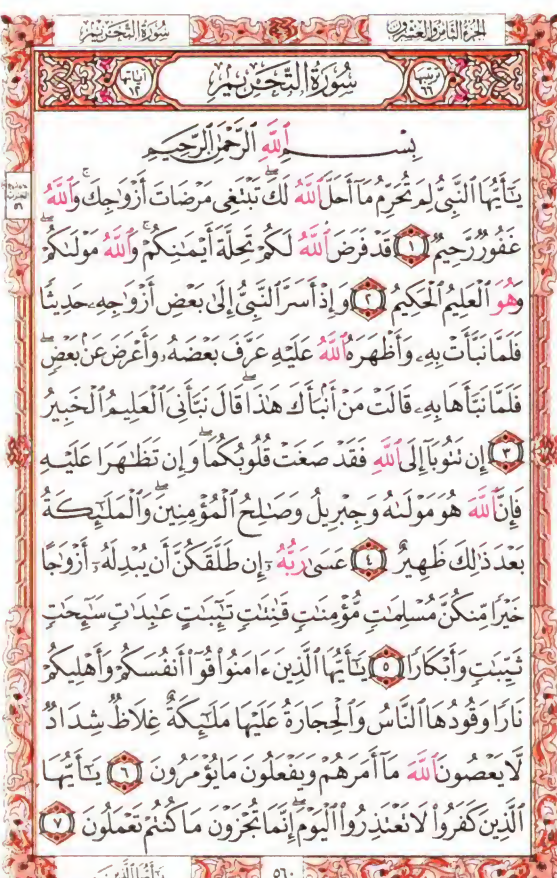 الجزء الثامن والعشرون سُورَةُ التَّحْرِيْمِ
ترتيبها ٦٦ سُورَةُ التَّحْرِيمِ آياتها ١٢
بِسْمِ ٱللَّهِ ٱلرَّحْمَٰنِ ٱلرَّحِيمِ
يَٰٓأَيُّهَا ٱلنَّبِيُّ لِمَ تُحَرِّمُ مَآ أَحَلَّ ٱللَّهُ لَكَۖ تَبْتَغِى مَرْضَاتَ أَزْوَٰجِكَۚ وَٱللَّهُ
غَفُورٌ رَّحِيمٌ ١ قَدْ فَرَضَ ٱللَّهُ لَكُمْ تَحِلَّةَ أَيْمَٰنِكُمْۚ وَٱللَّهُ مَوْلَىٰكُمْۖ
وَهُوَ ٱلْعَلِيمُ ٱلْحَكِيمُ ٢ وَإِذْ أَسَرَّ ٱلنَّبِيُّ إِلَىٰ بَعْضِ أَزْوَٰجِهِۦ حَدِيثًا
فَلَمَّا نَبَّأَتْ بِهِۦ وَأَظْهَرَهُ ٱللَّهُ عَلَيْهِ عَرَّفَ بَعْضَهُۥ وَأَعْرَضَ عَنۢ بَعْضٍۖ
فَلَمَّا نَبَّأَهَا بِهِۦ قَالَتْ مَنْ أَنۢبَأَكَ هَٰذَاۖ قَالَ نَبَّأَنِىَ ٱلْعَلِيمُ ٱلْخَبِيرُ
٣ إِن تَتُوبَآ إِلَى ٱللَّهِ فَقَدْ صَغَتْ قُلُوبُكُمَاۖ وَإِن تَظَٰهَرَا عَلَيْهِ
فَإِنَّ ٱللَّهَ هُوَ مَوْلَىٰهُ وَجِبْرِيلُ وَصَٰلِحُ ٱلْمُؤْمِنِينَۖ وَٱلْمَلَٰٓئِكَةُ
بَعْدَ ذَٰلِكَ ظَهِيرٌ ٤ عَسَىٰ رَبُّهُۥٓ إِن طَلَّقَكُنَّ أَن يُبْدِلَهُۥٓ أَزْوَٰجًا
خَيْرًا مِّنكُنَّ مُسْلِمَٰتٍ مُّؤْمِنَٰتٍ قَٰنِتَٰتٍ تَٰٓئِبَٰتٍ عَٰبِدَٰتٍ سَٰٓئِحَٰتٍ
ثَيِّبَٰتٍ وَأَبْكَارًا ٥ يَٰٓأَيُّهَا ٱلَّذِينَ ءَامَنُوا۟ قُوٓا۟ أَنفُسَكُمْ وَأَهْلِيكُمْ
نَارًا وَقُودُهَا ٱلنَّاسُ وَٱلْحِجَارَةُ عَلَيْهَا مَلَٰٓئِكَةٌ غِلَاظٌ شِدَادٌ
لَّا يَعْصُونَ ٱللَّهَ مَآ أَمَرَهُمْ وَيَفْعَلُونَ مَا يُؤْمَرُونَ ٦ يَٰٓأَيُّهَا
ٱلَّذِينَ كَفَرُوا۟ لَا تَعْتَذِرُوا۟ ٱلْيَوْمَۖ إِنَّمَا تُجْزَوْنَ مَا كُنتُمْ تَعْمَلُونَ ٧
٥٦٠